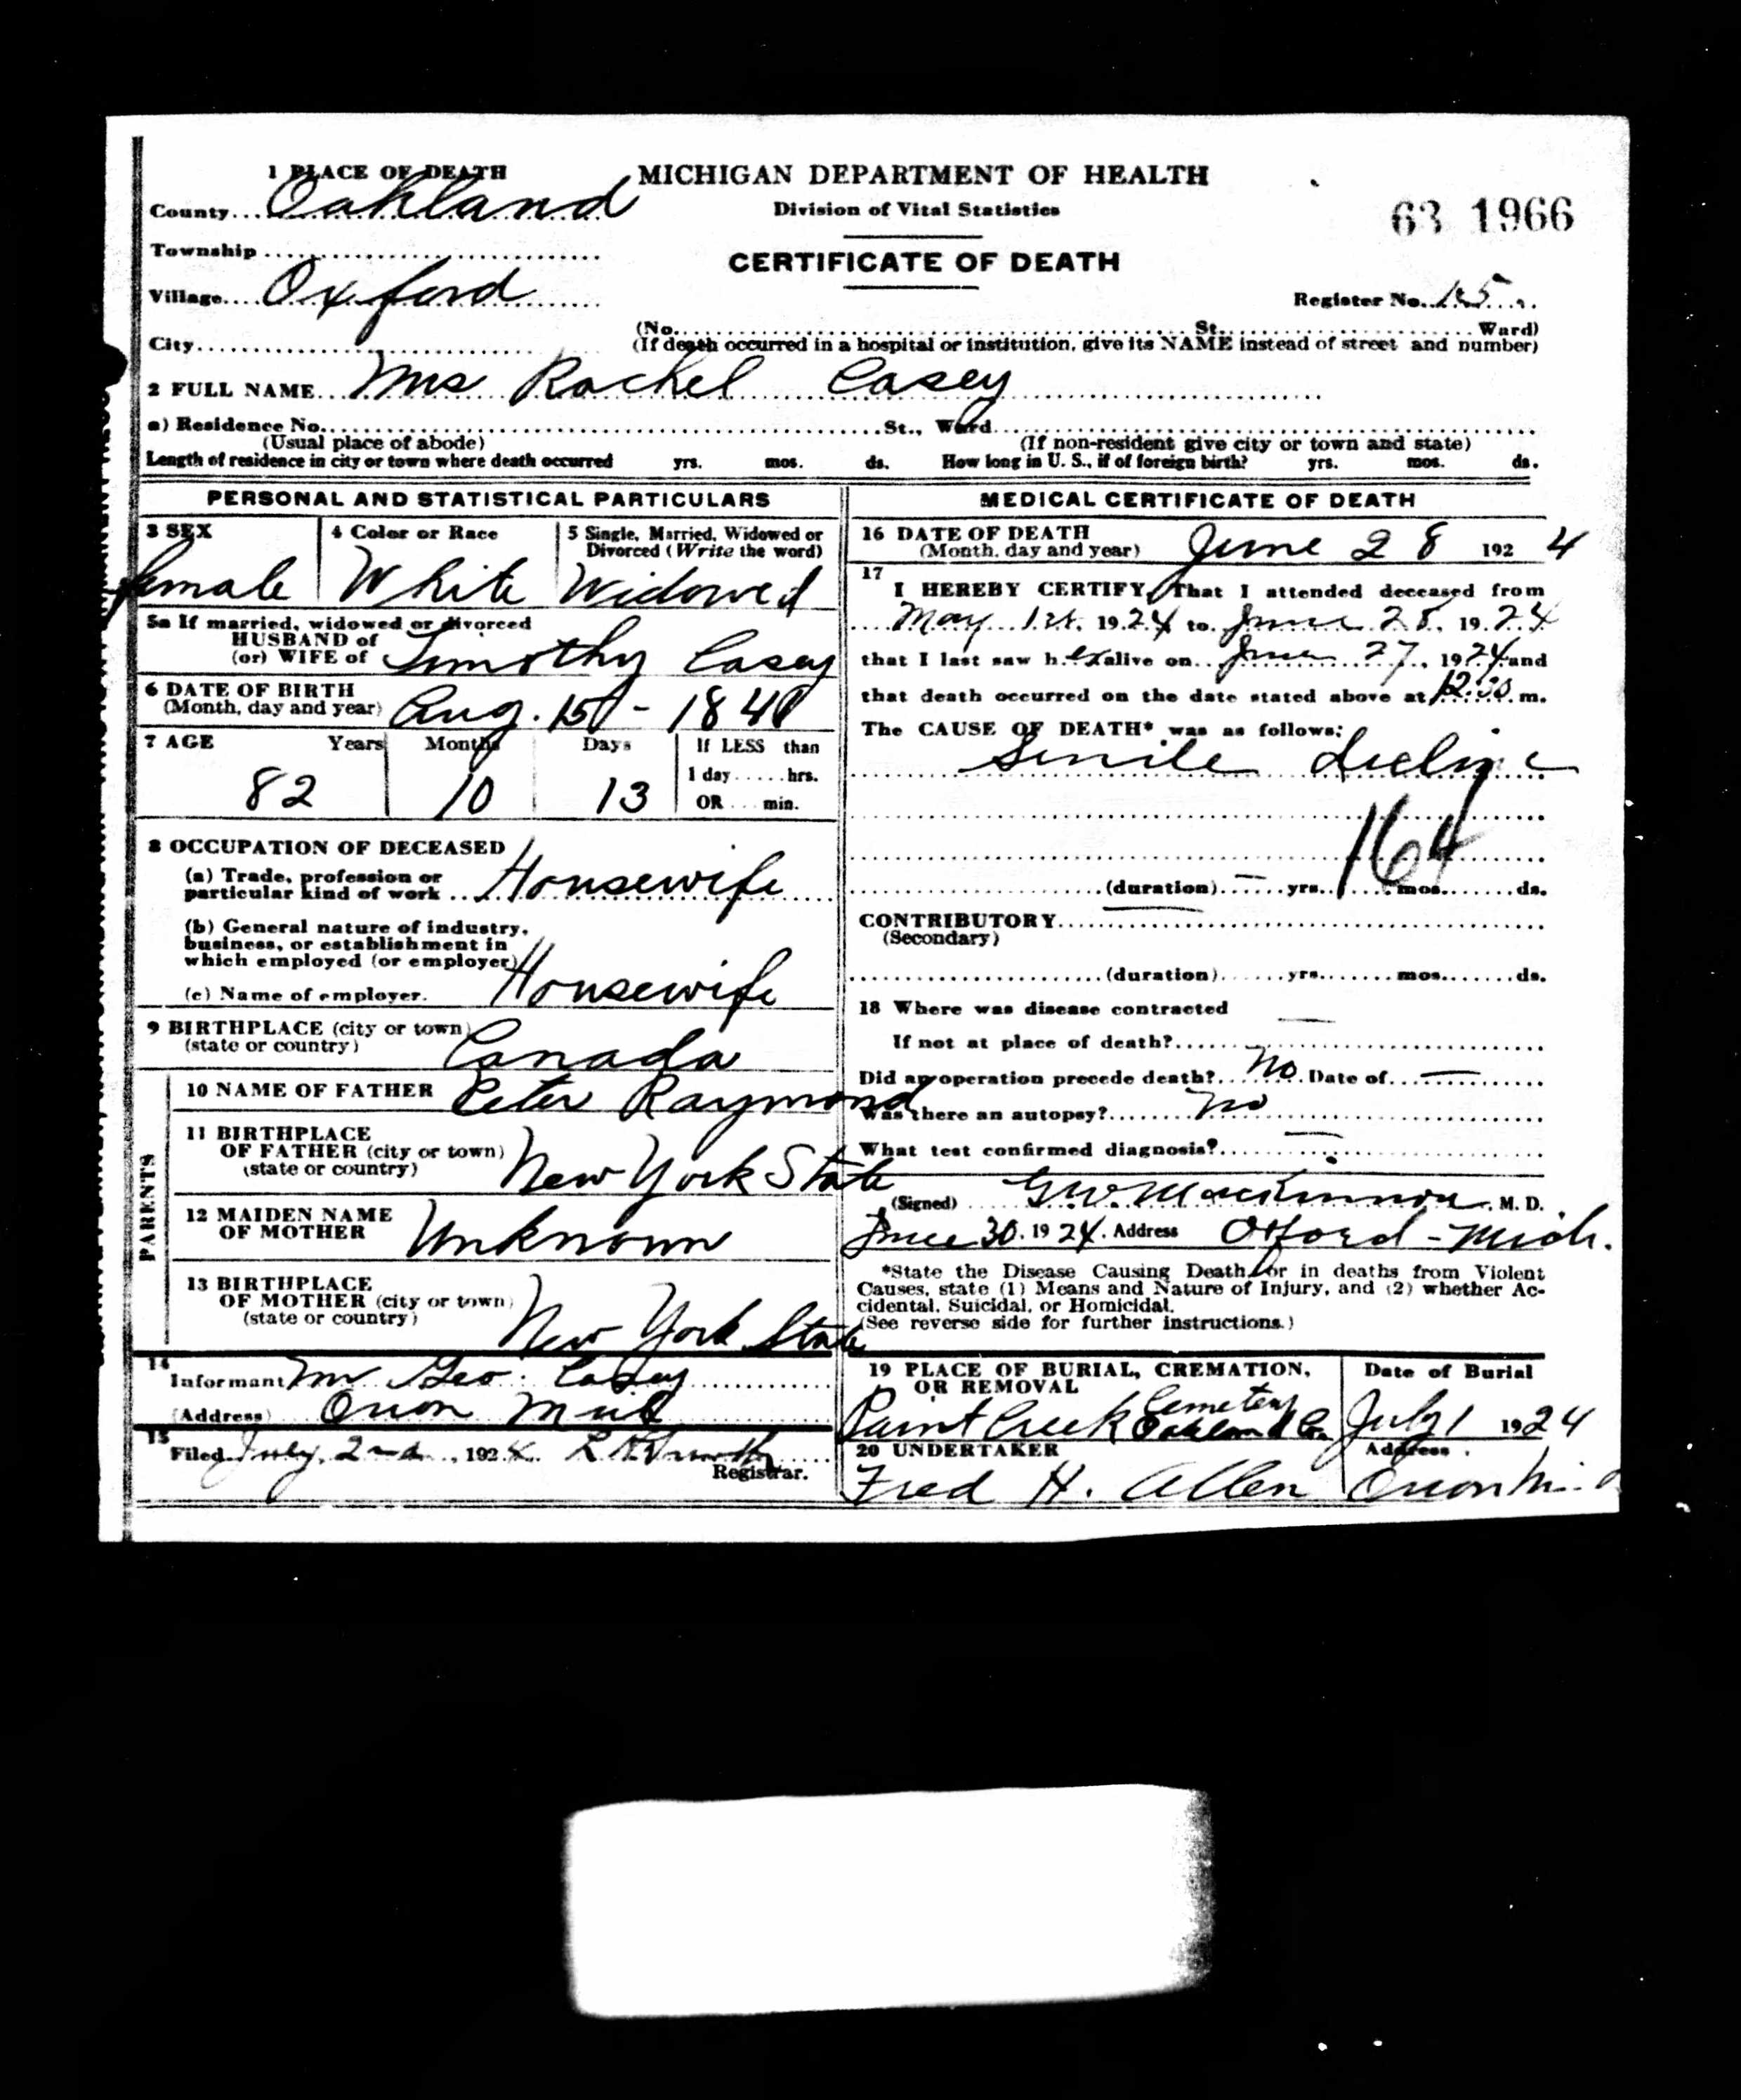 1 PLACE OF DEATH
MICHIGAN DEPARTMENT OF HEALTH
County Oakland
Division of Vital Statistics
63 1966
Township
CERTIFICATE OF DEATH
Village Oxford
Register No. 15
(No. St. Ward)
City
(If death occurred in a hospital or institution, give its NAME instead of street and number)
2 FULL NAME Mrs Rachel Casey
a) Residence No. St., Ward
(Usual place of abode) (If non-resident give city or town and state)
Length of residence in city or town where death occurred yrs. mos. ds. How long in U. S., if of foreign birth? yrs. mos. ds.
PERSONAL AND STATISTICAL PARTICULARS
3 SEX 4 Color or Race 5 Single, Married, Widowed or
Divorced (Write the word)
female White Widowed
5a If married, widowed or divorced
HUSBAND of
(or) WIFE of Timothy Casey
6 DATE OF BIRTH
(Month, day and year) Aug. 15 - 184
7 AGE Years Months Days If LESS than
1 day hrs.
82 10 13 OR min.
8 OCCUPATION OF DECEASED
(a) Trade, profession or
particular kind of work Housewife
(b) General nature of industry,
business, or establishment in
which employed (or employer)
Housewife
(c) Name of employer.
9 BIRTHPLACE (city or town)
(state or country) Canada
PARENTS
10 NAME OF FATHER Peter Raymond
11 BIRTHPLACE
OF FATHER (city or town)
(state or country) New York State
12 MAIDEN NAME
OF MOTHER Unknown
13 BIRTHPLACE
OF MOTHER (city or town)
(state or country) New York State
14
Informant Mr Geo. Casey
(Address) Orion Mich
15
Filed July 2nd, 1924
Registrar.
MEDICAL CERTIFICATE OF DEATH
16 DATE OF DEATH
(Month, day and year) June 28 1924
17
I HEREBY CERTIFY, That I attended deceased from
May 1st, 1924 to June 28, 1924
that I last saw her alive on June 27, 1924 and
that death occurred on the date stated above at 12:30 m.
The CAUSE OF DEATH* was as follows:
Senile decline
164
(duration) — yrs. mos. ds.
CONTRIBUTORY
(Secondary)
(duration) yrs. mos. ds.
18 Where was disease contracted
If not at place of death? —
Did an operation precede death? No Date of —
Was there an autopsy? No
What test confirmed diagnosis? —
(Signed) G W MacKinnon, M. D.
June 30, 1924. Address Oxford - Mich.
*State the Disease Causing Death, or in deaths from Violent
Causes, state (1) Means and Nature of Injury, and (2) whether Ac-
cidental, Suicidal, or Homicidal.
(See reverse side for further instructions.)
19 PLACE OF BURIAL, CREMATION, Date of Burial
OR REMOVAL
Cemetery
Paint Creek Oakland Co. July 1 1924
20 UNDERTAKER Address
Fred H. Allen Orion